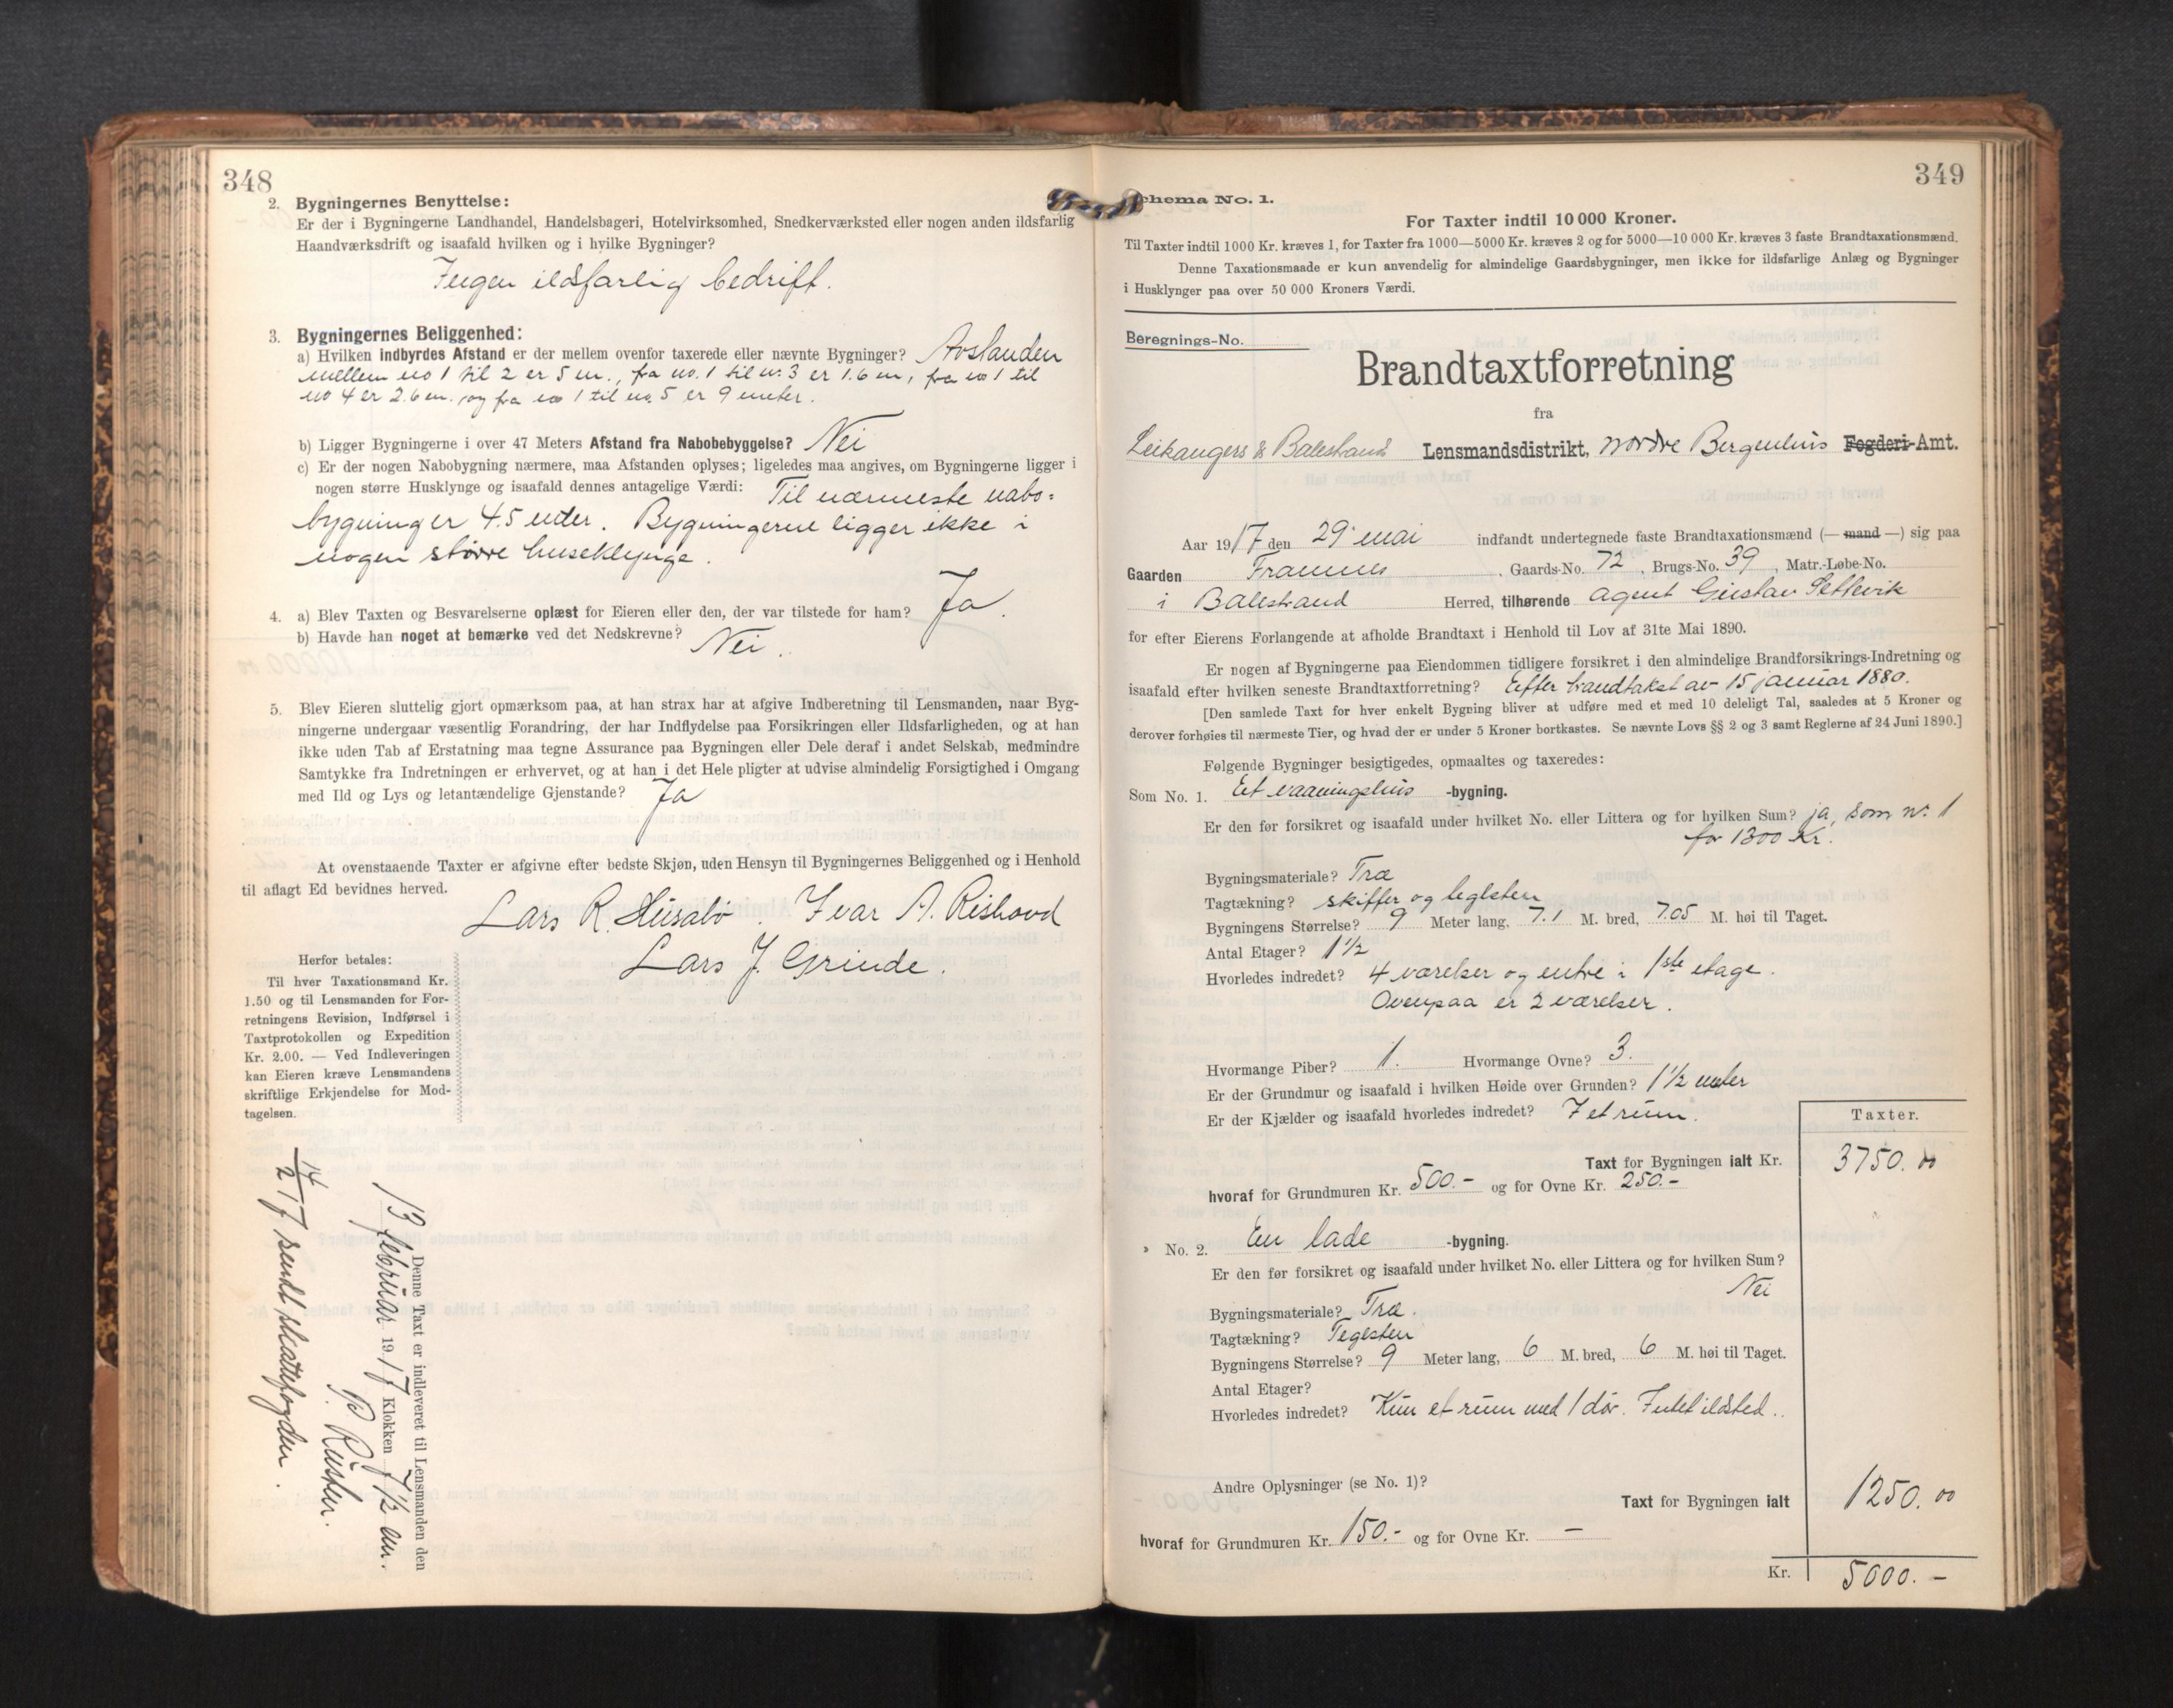 348
2. Bygningernes Benyttelse:
Er der i Bygningerne Landhandel, Handelsbageri, Hotelvirksomhed, Snedkerværksted eller nogen anden ildsfarlig
Haandværksdrift og isaafald hvilken og i hvilke Bygninger?
Ingen ildsfarlig bedrift.
3. Bygningernes Beliggenhed:
a) Hvilken indbyrdes Afstand er der mellem ovenfor taxerede eller nævnte Bygninger? Avstanden
mellem no 1 til 2 er 5 m., fra no. 1 til nr. 3 er 1.6 m, fra no 1 til
no 4 er 2.6 m. og fra no 1 til no. 5 er 9 meter.
b) Ligger Bygningerne i over 47 Meters Afstand fra Nabobebyggelse? Nei
c) Er der nogen Nabobygning nærmere, maa Afstanden oplyses; ligeledes maa angives, om Bygningerne ligger i
nogen større Husklynge og isaafald dennes antagelige Værdi: Til nærmeste nabo-
bygning er 4.5 meter. Bygningerne ligger ikke i
nogen større huseklynge.
4. a) Blev Taxten og Besvarelserne oplæst for Eieren eller den, der var tilstede for ham? Ja.
b) Havde han noget at bemærke ved det Nedskrevne? Nei.
5. Blev Eieren sluttelig gjort opmærksom paa, at han strax har at afgive Indberetning til Lensmanden, naar Byg-
ningerne undergaar væsentlig Forandring, der har Indflydelse paa Forsikringen eller Ildsfarligheden, og at han
ikke uden Tab af Erstatning maa tegne Assurance paa Bygningen eller Dele deraf i andet Selskab, medmindre
Samtykke fra Indretningen er erhvervet, og at han i det Hele pligter at udvise almindelig Forsigtighed i Omgang
med Ild og Lys og letantændelige Gjenstande? Ja
At ovenstaaende Taxter er afgivne efter bedste Skjøn, uden Hensyn til Bygningernes Beliggenhed og i Henhold
til aflagt Ed bevidnes herved.
Lars R. Husabø. Ivar A. Rishovd
Lars J. Grinde.
Herfor betales:
Til hver Taxationsmand Kr.
1.50 og til Lensmanden for For-
retningens Revision, Indførsel i
Taxtprotokollen og Expedition
Kr. 2.00. — Ved Indleveringen
kan Eieren kræve Lensmandens
skriftlige Erkjendelse for Mod-
tagelsen.
Denne Taxt er indleveret til Lensmanden den
13 februar 1917 Klokken 7 1/2 em.
P. Rusten.
14/2 17 sendt skattefogden.
349
Schema No. 1.
For Taxter indtil 10 000 Kroner.
Til Taxter indtil 1000 Kr. kræves 1, for Taxter fra 1000—5000 Kr. kræves 2 og for 5000—10 000 Kr. kræves 3 faste Brandtaxationsmænd.
Denne Taxationsmaade er kun anvendelig for almindelige Gaardsbygninger, men ikke for ildsfarlige Anlæg og Bygninger
i Husklynger paa over 50 000 Kroners Værdi.
Beregnings-No.
Brandtaxtforretning
fra
Leikanger & Balestrand Lensmandsdistrikt, Nordre Bergenhus Fogderi-Amt.
Aar 1917 den 29 mai indfandt undertegnede faste Brandtaxationsmænd (— mand —) sig paa
Gaarden Framnes, Gaards-No. 72, Brugs-No. 39, Matr.-Løbe-No.
i Balestrand Herred, tilhørende agent Gustav Settevik
for efter Eierens Forlangende at afholde Brandtaxt i Henhold til Lov af 31te Mai 1890.
Er nogen af Bygningerne paa Eiendommen tidligere forsikret i den almindelige Brandforsikrings-Indretning og
isaafald efter hvilken seneste Brandtaxtforretning? Efter brandtakst av 15 januar 1880.
[Den samlede Taxt for hver enkelt Bygning bliver at udføre med et med 10 deleligt Tal, saaledes at 5 Kroner og
derover forhøies til nærmeste Tier, og hvad der er under 5 Kroner bortkastes. Se nævnte Lovs §§ 2 og 3 samt Reglerne af 24 Juni 1890.]
Følgende Bygninger besigtigedes, opmaaltes og taxeredes:
Som No. 1. Et vaaningshus -bygning.
Er den før forsikret og isaafald under hvilket No. eller Littera og for hvilken Sum? ja, som nr. 1
for 1300 Kr.
Bygningsmateriale? Træ
Tagtækning? skiffer og teglsten
Bygningens Størrelse? 9 Meter lang, 7.1 M. bred, 7.05 M. høi til Taget.
Antal Etager? 1 1/2
Hvorledes indredet? 4 værelser og entre i 1ste etage.
Ovenpaa er 2 værelser.
Hvormange Piber? 1. Hvormange Ovne? 3.
Er der Grundmur og isaafald i hvilken Høide over Grunden? 1 1/2 meter
Er der Kjælder og isaafald hvorledes indredet? I et rum.
Taxter.
Taxt for Bygningen ialt Kr. 3750. 00
hvoraf for Grundmuren Kr. 500.- og for Ovne Kr. 250.-
No. 2. En lade -bygning.
Er den før forsikret og isaafald under hvilket No. eller Littera og for hvilken Sum?
Nei
Bygningsmateriale? Træ.
Tagtækning? Teglsten
Bygningens Størrelse? 9 Meter lang, 6 M. bred, 6 M. høi til Taget.
Antal Etager?
Hvorledes indredet? Kun et rum med 1 dør. Intet ildsted.
Andre Oplysninger (se No. 1)?
Taxt for Bygningen ialt 1250. 00
hvoraf for Grundmuren Kr. 150.- og for Ovne Kr. —
Kr. 5000.-